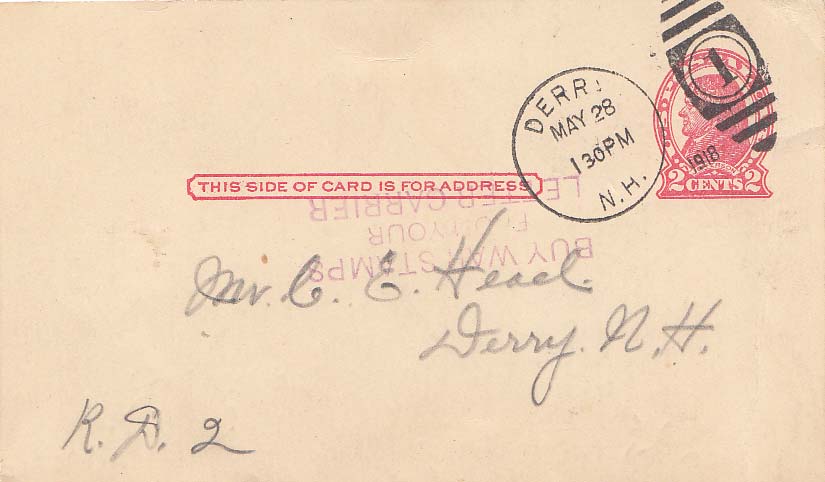 DERRY
MAY 28
1 30 PM
1918
N.H.
1
2 CENTS 2
THIS SIDE OF CARD IS FOR ADDRESS
BUY WAR STAMPS
FROM YOUR
LETTER CARRIER
Mr. C. E. Head
Derry. N. H.
R. D. 2